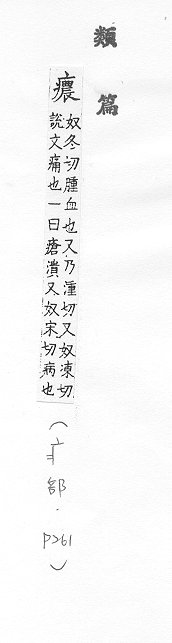 類篇
癑
奴冬切腫血也又乃湩切又奴凍切
說文痛也一曰瘡潰又奴宋切病也
(疒部.P261)